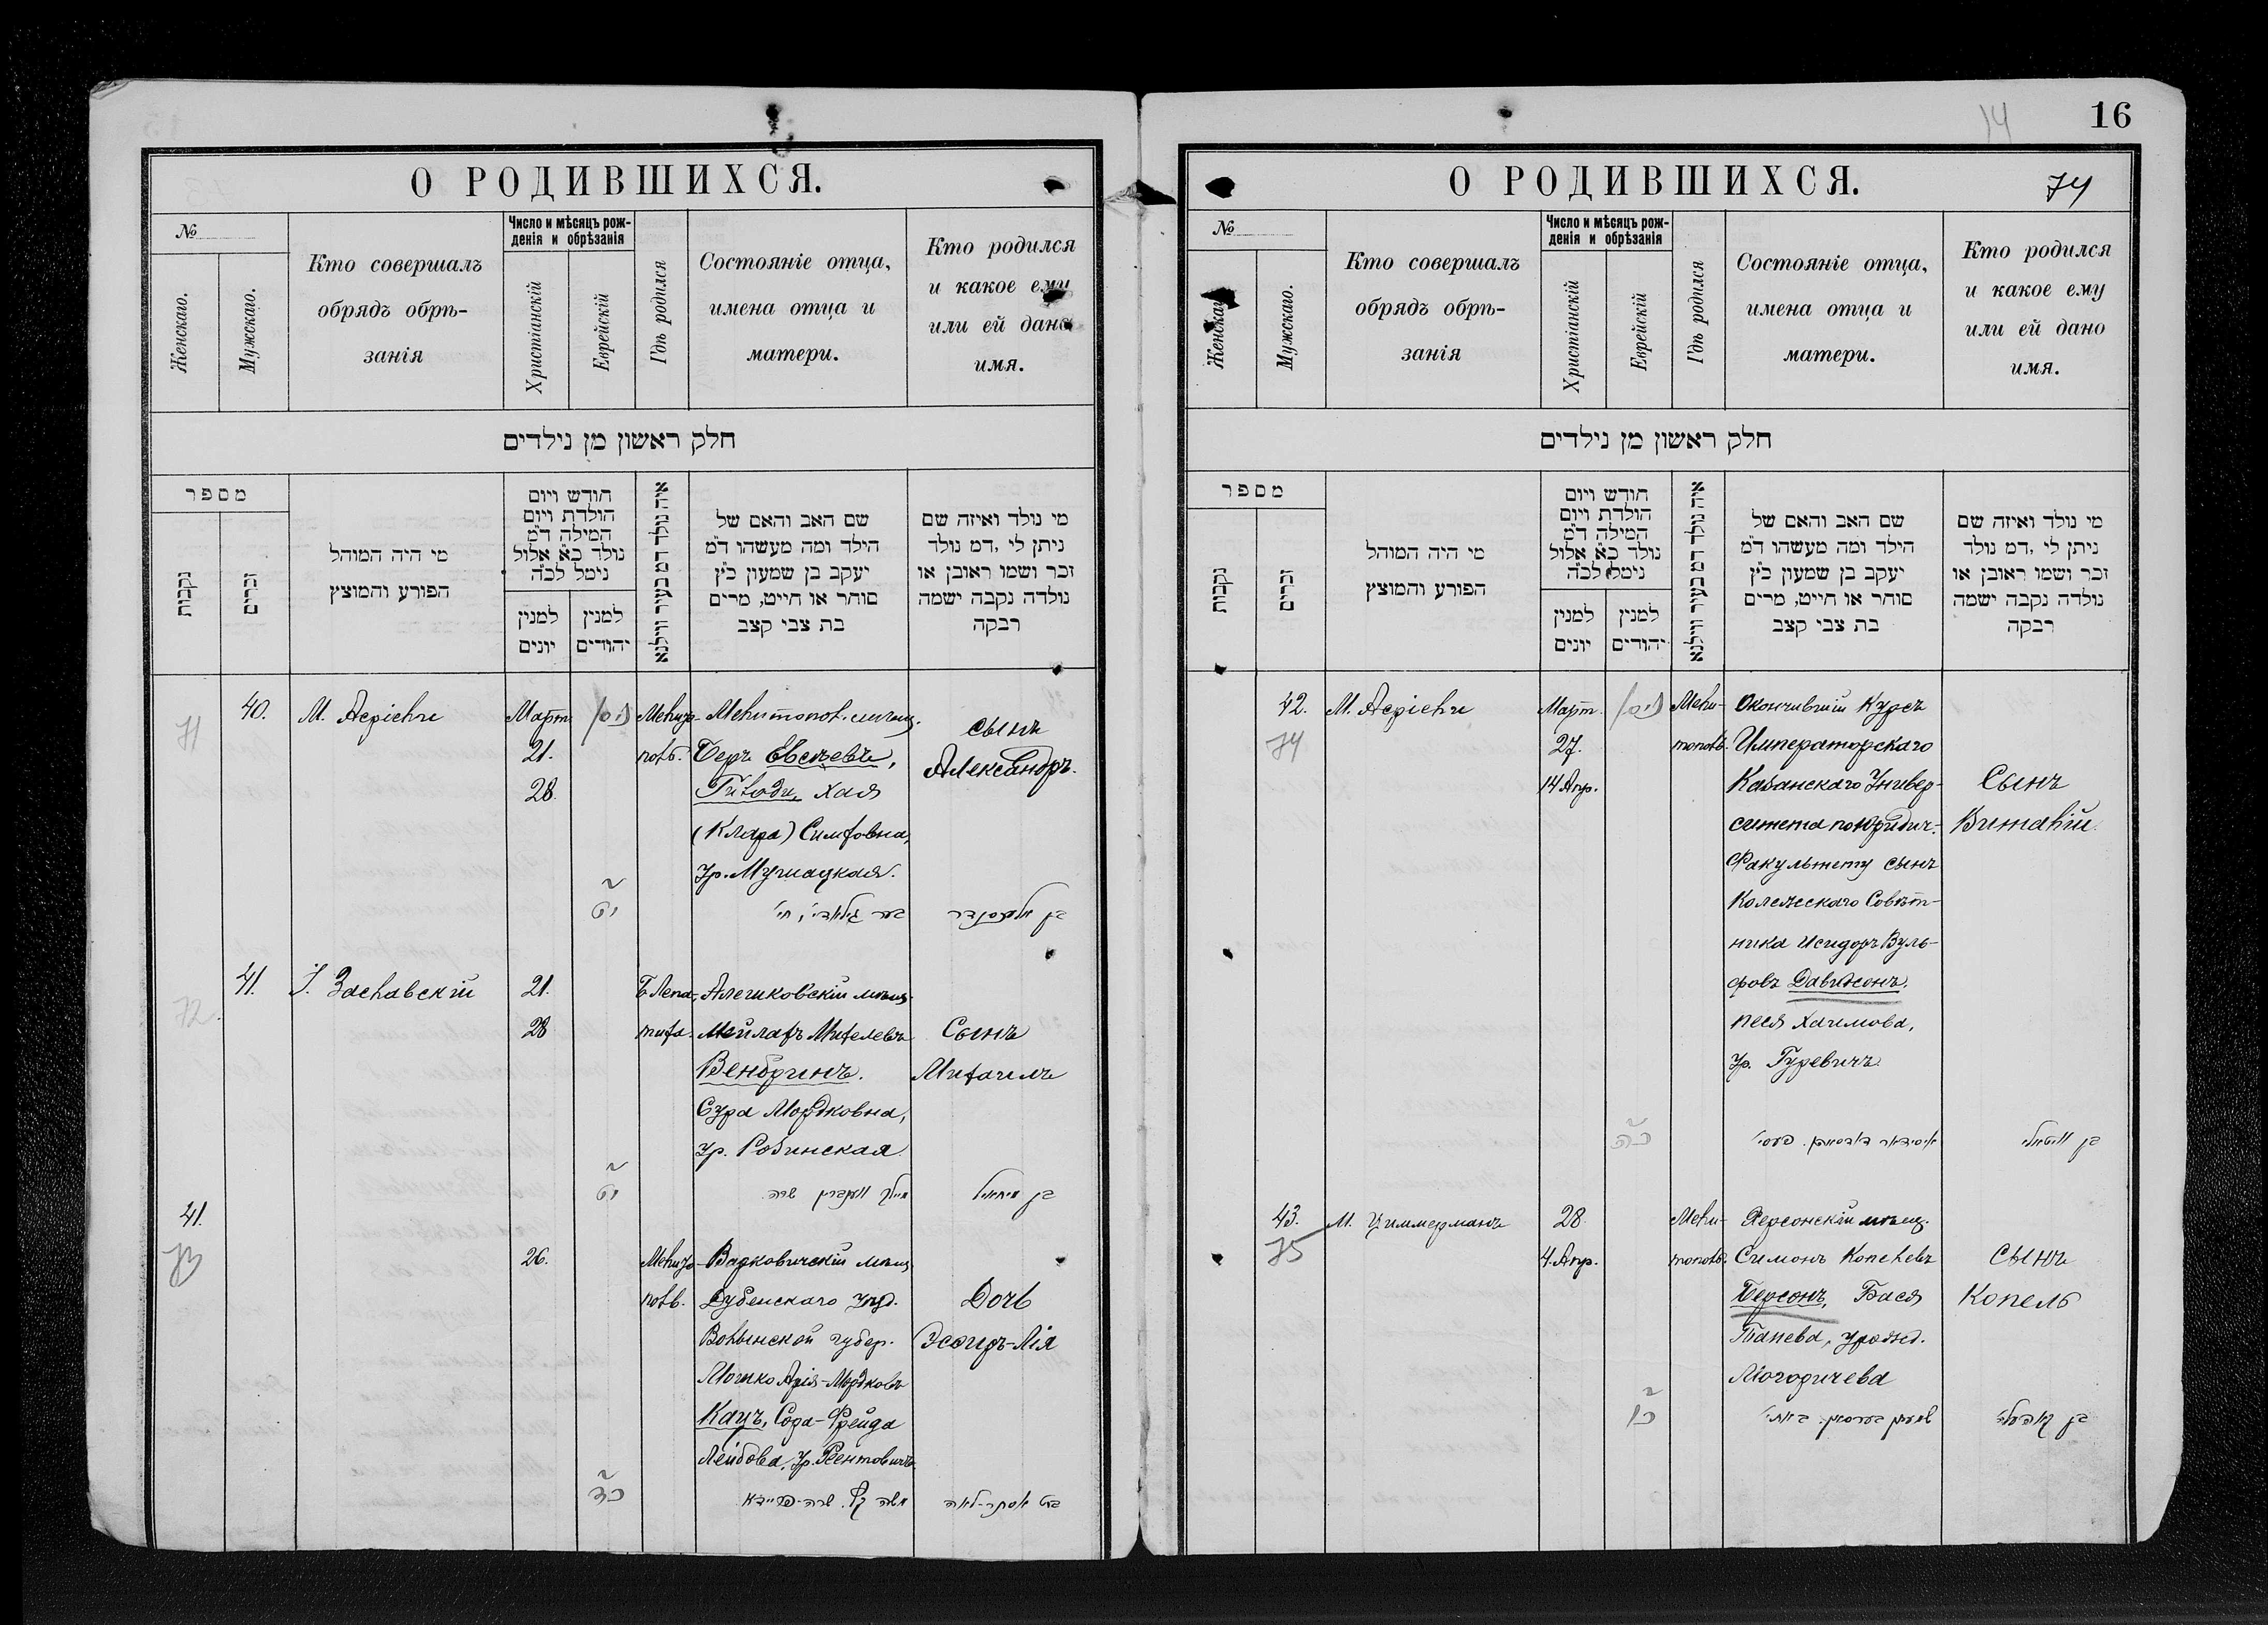 О РОДИВШИХСЯ.
№
Женскаго.
Мужскаго.
Кто совершалъ
обрядъ обрѣ-
занія
Число и мѣсяцъ рож-
денія и обрѣзанія
Христіанскій
Еврейскій
Гдѣ родился
Состояніе отца,
имена отца и
матери.
Кто родился
и какое ему
или ей дано
имя.
חלק ראשון מן נילדים
מספר
נקבות
זכרים
מי היה המוהל
הפורע והמוצץ
חודש ויום
הולדת ויום
המילה ד״מ
נולד כ״א אלול
נימל לכ״ה
למנין
יונים
למנין
יהודים
איה נולד דמ בעיר ווילנא
שם האב והאם של
הילד ומה מעשהו ד״מ
יעקב בן שמעון כ״ץ
סוחר או חייט, מרים
בת צבי קצב
מי נולד ואיזה שם
ניתן לי ,דמ נולד
זכר ושמו ראובן או
נולדה נקבה ישמה
רבקה
71
40.
Март.
21.
28.
ניסן
י״ט
Беръ Евсѣевъ,
Хая
(Клара)
сынъ
Александръ.
בן אלכסנדר
72.
41.
І. Заславскій
21.
28
י״ט
Алешковскій мѣщ.
Мейлахъ Михелевъ
Вендринъ.
Сура Мордковна,
ур. Робинская
Сынъ
Михаилъ
41.
73
26.
כ״ד
Варковичскій мѣщ.
Дубенскаго уѣзд.
Волынской губер.
Мошко Арія-Мордковъ
Кацъ, Сора-Фрейда
Лейбова, ур.
משה כץ. שרה-פריידא
Дочь
Эсѳирь-Лія
בת אסתר-לאה
14
16
О РОДИВШИХСЯ.
74
№
Женскаго
Мужскаго.
Кто совершалъ
обрядъ обрѣ-
занія
Число и мѣсяцъ рож-
денія и обрѣзанія
Христіанскій
Еврейскій
Гдѣ родился
Состояніе отца,
имена отца и
матери.
Кто родился
и какое ему
или ей дано
имя.
חלק ראשון מן נילדים
מספר
נקבות
זכרים
מי היה המוהל
הפורע והמוצץ
חודש ויום
הולדת ויום
המילה ד״מ
נולד כ״א אלול
נימל לכ״ה
למנין
יונים
למנין
יהודים
איה נולד דמ בעיר ווילנא
שם האב והאם של
הילד ומה מעשהו ד״מ
יעקב בן שמעון כ״ץ
סוחר או חייט, מרים
בת צבי קצב
מי נולד ואיזה שם
ניתן לי ,דמ נולד
זכר ושמו ראובן או
נולדה נקבה ישמה
רבקה
42.
74
Март.
27.
14 Апр.
ניסן
כ״ה
Мели-
тополь.
Окончившій Курсъ
Императорскаго
Казанскаго Универ-
ситета по Юридич.
Факультету сынъ
Колежскаго Совѣт-
ника Исидоръ Вуль-
фовъ Давидсонъ.
Песя Хаимова,
ур. Гуревичъ.
Сынъ
Виталій.
43.
75
М. Циммерманъ
28.
4. Апр.
Мели-
тополь.
Херсонскій мѣщ.
Симонъ Копелевъ
Берсонъ, Бася
урожд.
сынъ
Копель